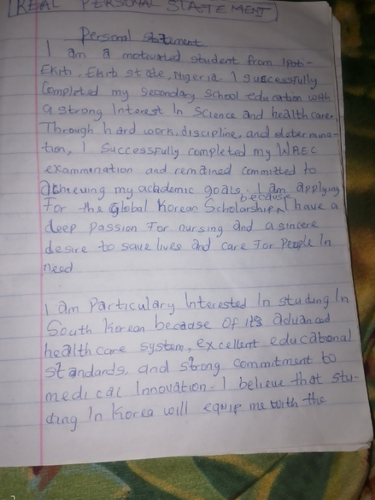 REAL PERSONAL STATEMENT
Personal statement
I am a motivated student from Ipoti-
Ekiti, Ekiti state, Nigeria. I successfully
Completed my Secondary School education with
a strong Interest In Science and healthcare.
Through hard work, discipline, and determina-
tion, I Successfully completed my WAEC
examination and remained committed to
achieving my academic goals. I am applying
For the Global Korean Scholarship because I have a
deep Passion For nursing and a sincere
desire to save lives and care For People In
need

I am Particulary Interested In studing In
South Korean because Of its advanced
healthcare system, excellent educational
standards, and strong commitment to
medical Innovation. I believe that stu-
ding In Korea will equip me with the